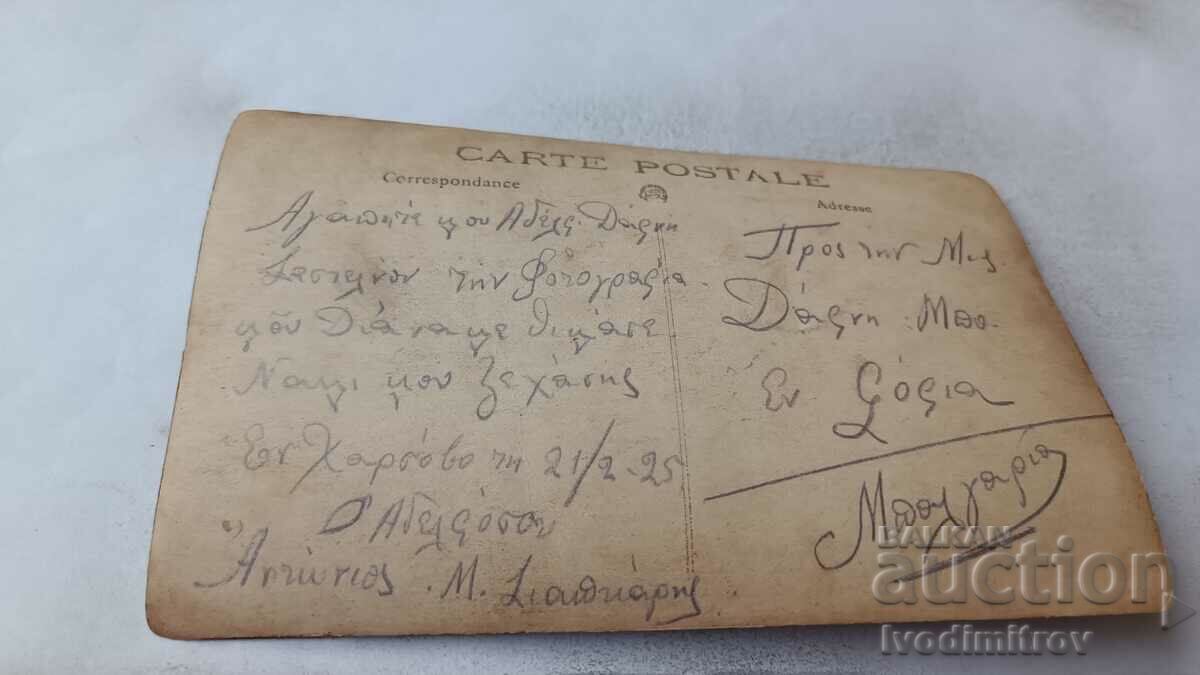 CARTE POSTALE
Correspondance
Adresse
Αγαπητε μου Αδελφ. Δάφνη
την Φοτογραφια.
μοῦ Διά να με θιμάσε
Να μι μου ξεχάσης
Εν Χαρσόβο τη 21/2-25
Ο Αδελφόσου
Αντώνιος. Μ.
Προς την Μις.
Δάφνη. Μπο.
Εν Σόφια
Μπουλγαρία
BALKAN
auction
Ivodimitrov